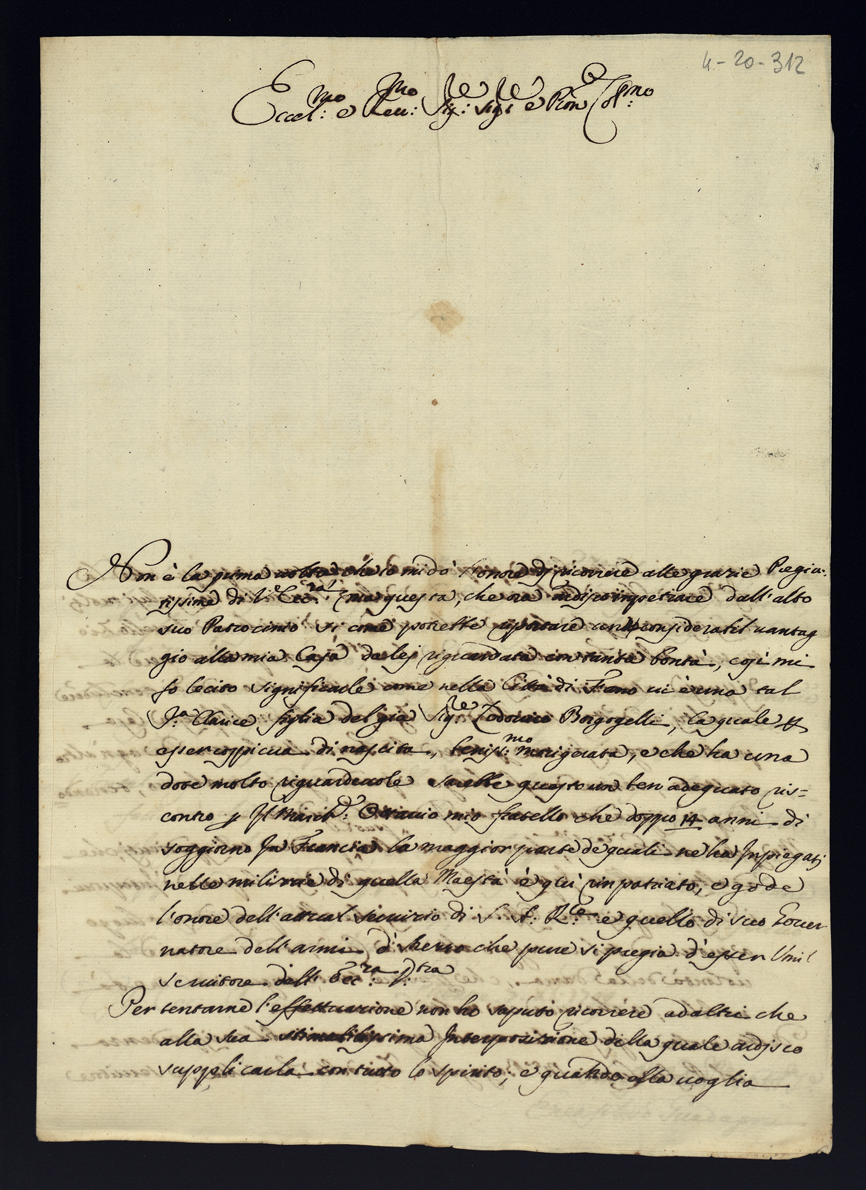 4-20-312
Eccel:mo e Rev:mo Sig:re Sig:re e Pron Col:mo
Non è la prima volta che io mi dò l'onore di ricorrere alle grazie Pregia-
tissime di V:a Ecc:za questa, che ora dall'alto
suo Patrocinio si come potrebbe riportare un considerabil vantag
gio alla mia Casa da lej riguardata con tanta bontà, così mi
fo lecito significarle come nella Città di Fano vi è una tal
Sra Clarice figlia del già Sig:re Lodovico Borgogelli, la quale
esser cospicua di nascita, beniss:mo morigerata, e che ha una
dote molto riguardevole sarebbe questo un ben adeguato ris-
contro p Il March: Ottavio mio fratello che doppo 14 anni di
soggiorno In Francia la maggior parte de quali ne ha Inpiegatj
nelle milizie di quella Maestà è qui rinpatriato, e gode
l'onore dell'attual servizio di S. A. R:le e quello di suo Gover
natore dell'armi d' che pure si pregia d'esser Umil
servitore dell' Ecc:za V:tra
Per tentarne l'effettuazione non ho saputo ricorrere ad altri che
alla sua stimatilissima Interposizione della quale ardisco
supplicarla con tutto lo spirito; e quando ella voglia